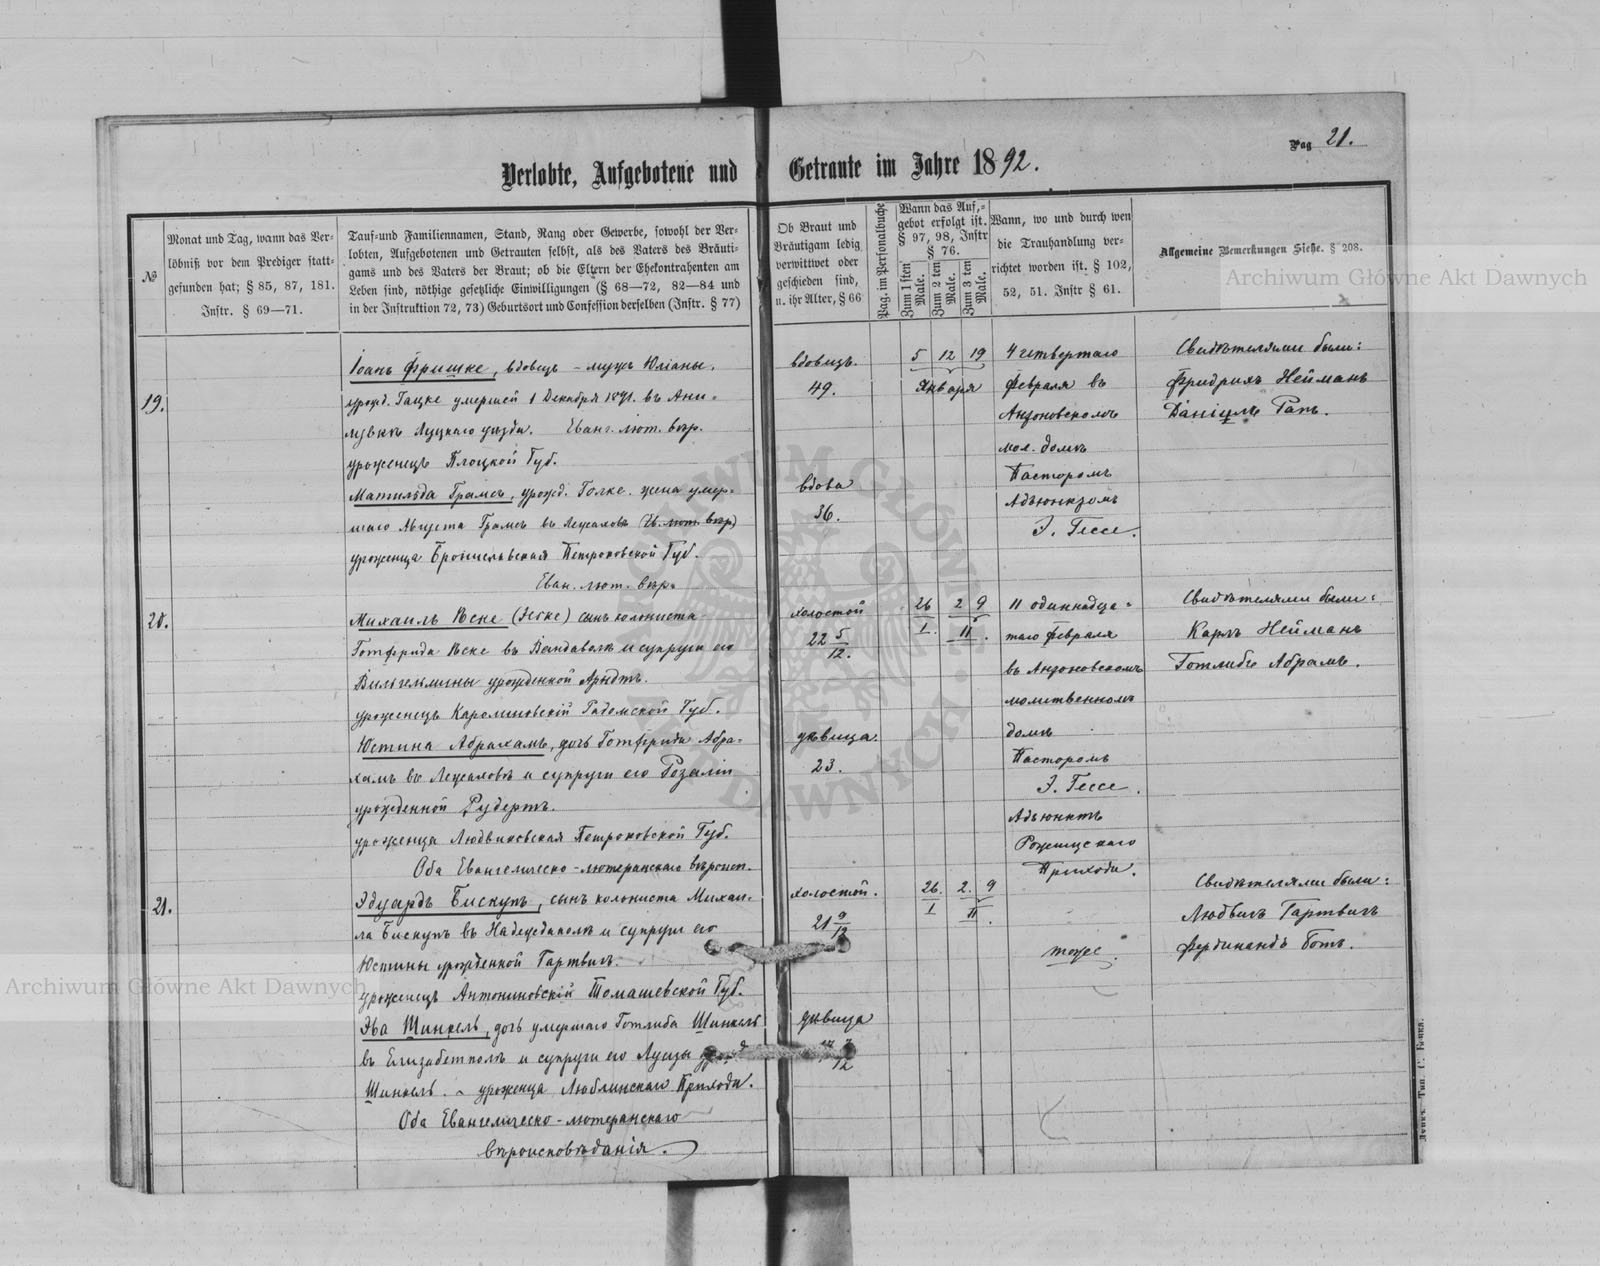 Pag 21.
Verlobte, Aufgebotene und Getraute im Jahre 1892.
№
Monat und Tag, wann das Ver-
löbniß vor dem Prediger statt-
gefunden hat; § 85, 87, 181.
Instr. § 69—71.
Tauf-und Familiennamen, Stand, Rang oder Gewerbe, sowohl der Ver-
lobten, Aufgebotenen und Getrauten selbst, als des Vaters des Bräuti-
gams und des Vaters der Braut; ob die Eltern der Ehekontrahenten am
Leben sind, nöthige gesetzliche Einwilligungen (§ 68—72, 82—84 und
in der Instruktion 72, 73) Geburtsort und Confession derselben (Instr. § 77)
Ob Braut und
Bräutigam ledig
verwittwet oder
geschieden sind,
u. ihr Alter, § 66
Pag. im Personalbuche
Wann das Auf,-
gebot erfolgt ist.
§ 97, 98, Instr
§ 76.
Zum 1 sten Male.
Zum 2 ten Male.
Zum 3 ten Male.
Wann, wo und durch wen
die Trauhandlung ver-
richtet worden ist. § 102,
52, 51. Instr § 61.
Allgemeine Bemerkungen Siehe. § 208.
Archiwum Główne Akt Dawnych
19.
Іоанъ Фришке, вдовецъ - мужъ Юліаны,
урожд. Гацке умершей 1 Декабря 1891. въ
Луцкаго уѣзда. Еванг. лют. вѣр.
уроженецъ Плоцкой Губ.
Матильда Грамсъ, урожд. Голке. жена умер=
шаго Августа Грамсъ въ (Ев. лют. вѣр)
уроженца Петроковской Губ.
Еван. лют. вѣр=
вдовецъ.
49.
вдова
36.
5 12 19
Января
4 четвертаго
Февраля въ
Антоновскомъ
мол. домѣ
Пасторомъ
Адъюнктомъ
Э. Гессе.
Свидѣтелями были:
Фридрихъ Нейманъ
Даніилъ Рапъ.
20.
Михаилъ Іеске (Jeske) сынъ колониста
Готфрида Іеске въ и супруги его
Вильгельмины урожденной Арндтъ.
уроженецъ Каролиновскій Радомской Губ.
Юстина Абрахамъ, дочь Готфрида Абра-
хамъ въ и супруги его Розаліи
урожденной Рудертъ.
уроженца Людвиковская Петроковской Губ.
Оба Евангелическо-лютеранскаго вѣроисп.
холостой
22 5/12.
дѣвица.
23.
26 2 9
I. II.
11 одиннадца=
таго Февраля
въ Антоновскомъ
молитвенномъ
домѣ
Пасторомъ
Э. Гессе.
Адъюнктъ
Рожищскаго
Прихода.
Свидѣтелями были:
Карлъ Нейманъ
Готлибъ Абрамъ.
21.
Эдуардъ Бискупъ, сынъ колониста Михаи-
ла Бискупъ въ и супруги его
Юстины урожденной Гартвигъ.
уроженецъ Антониновскій Томашевской Губ.
Эва Шинкель, дочь умершаго Готлиба Шинкель
въ Елизабетполѣ и супруги его Луизы
Шинкель. уроженца Люблинскаго Прихода.
Оба Евангелическо-лютеранскаго
вѣроисповѣданія.
холостой.
21 9/12
дѣвица
26. 2. 9
I II.
тоже.
Свидѣтелями были:
Людвигъ Гартвигъ
Фердинандъ Ботъ.
Archiwum Główne Akt Dawnych
ARCHIWUM GŁÓWNE AKT DAWNYCH